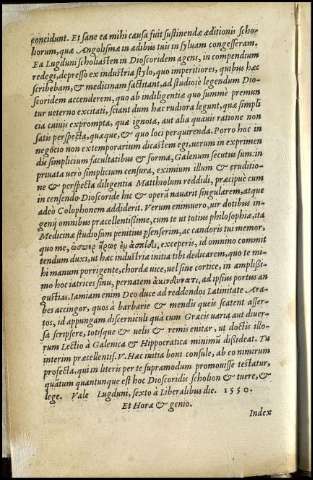 poncidunt. Et sane ea mihi causa fuit sustinendæ æditionis scho
liorum, quæ Angolisma in ædibus tuis in syluam congesseram,
Ea Lugduni scholiastem in Dioscoridem agens, in compendium
redegi, depresso ex industria stylo, quo imperitiores, quibus hæc
scribebam, & medicinam factitant, ad studiosè legendum Dio-
scoridem accenderem, quo ab indiligentia quo summè premun
tur veterno excitati, sciant dum hæc rudiora legunt, quæ simpli
cia cuiuis exprompta, quæ ignota, aut alia quauis ratione non
satis perspecta, quæque, & quo loci perquirenda. Porro hoc in
negocio non extemporariam dicastem egi: verum in exprimen
dis simplicium facultatibus & forma, Galenum secutus sum: in
priuata vero simplicium censura, eximium illum & eruditio-
ne & perspecta diligentia Matthiolum reddidi, præcipuè cum
in censendo Dioscoride huc & operā nauarit singularem, atque
adeò Colophonem addiderit. Verum enimuero, vir dotibus in-
genij omnibus præcellentissime, cum te vt totius philosophiæ, ita
Medicinæ studiosum penitius penserim, ac candoris tui memor,
quo me, excepéris, id omnino commit
tendum duxi, vt hæc industria initia tibi dedicarem, quo te mi-
hi manum porrigente, chorda vice, vel sine cortice, in amplissi-
mo hoc iatrices sinu, pernatem ad ipsius portus an
gustias. Iamiam enim Deo duce ad reddendos Latinitate Ara-
bes accingor, quos à barbarie & mendis queis scatent assertos,
id appungam discerniculi quò cum Græcis variæ aut diuer-
sa scripsere, totisque & velis & remis enitar, vt doctis illo-
rum Lectio à Galenica & Hippocratica minimù dissideat. Tu
interim præcellentiss. V. Hæc initia boni consule, ab eo nimirum
profecta, qui in literis per te supramodum promouisse testatur,
quātum quantunque est hoc Dioscoridis scholion & tuere, &
lege. Vale Lugduni, sexto à Liberalibus die. 1550.
Et Hora & genio.
Index